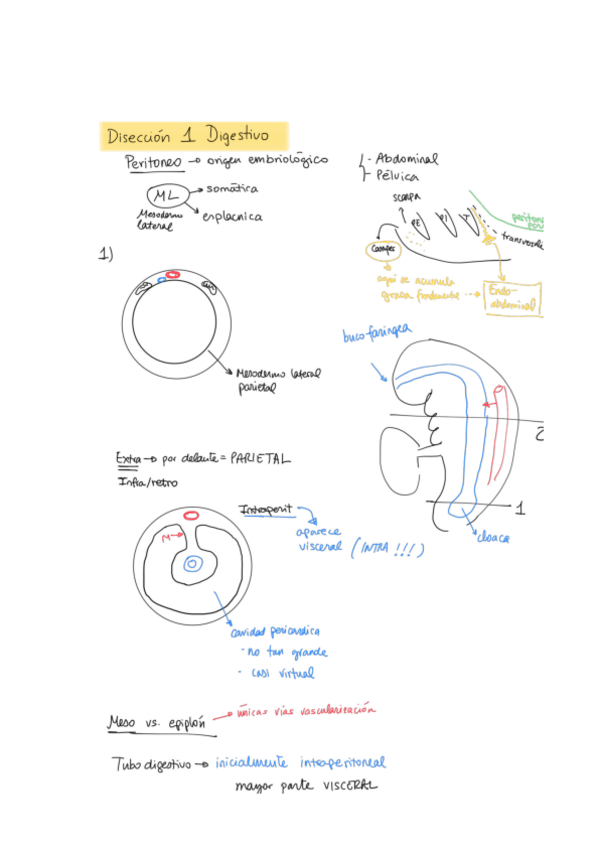 Disección 1 Digestivo
Peritoneo → origen embriológico
- Abdominal
- Pélvica
ML
→ somática
→ esplacnica
Mesodermo
lateral
scarpa
PE PI T
Camper
transversalis
aquí se acumula
grasa fundamente
Endo-
abdominal
1)
Mesodermo lateral
parietal
bucofaringea
2
1
cloaca
Extra → por delante = PARIETAL
Infra/retro
Intraperit
aparece
visceral (INTRA !!!)
M →
cavidad pericardica
- no tan grande
- casi virtual
Meso vs. epiplón → únicas vías vascularización
Tubo digestivo → inicialmente intraperitoneal
mayor parte VISCERAL